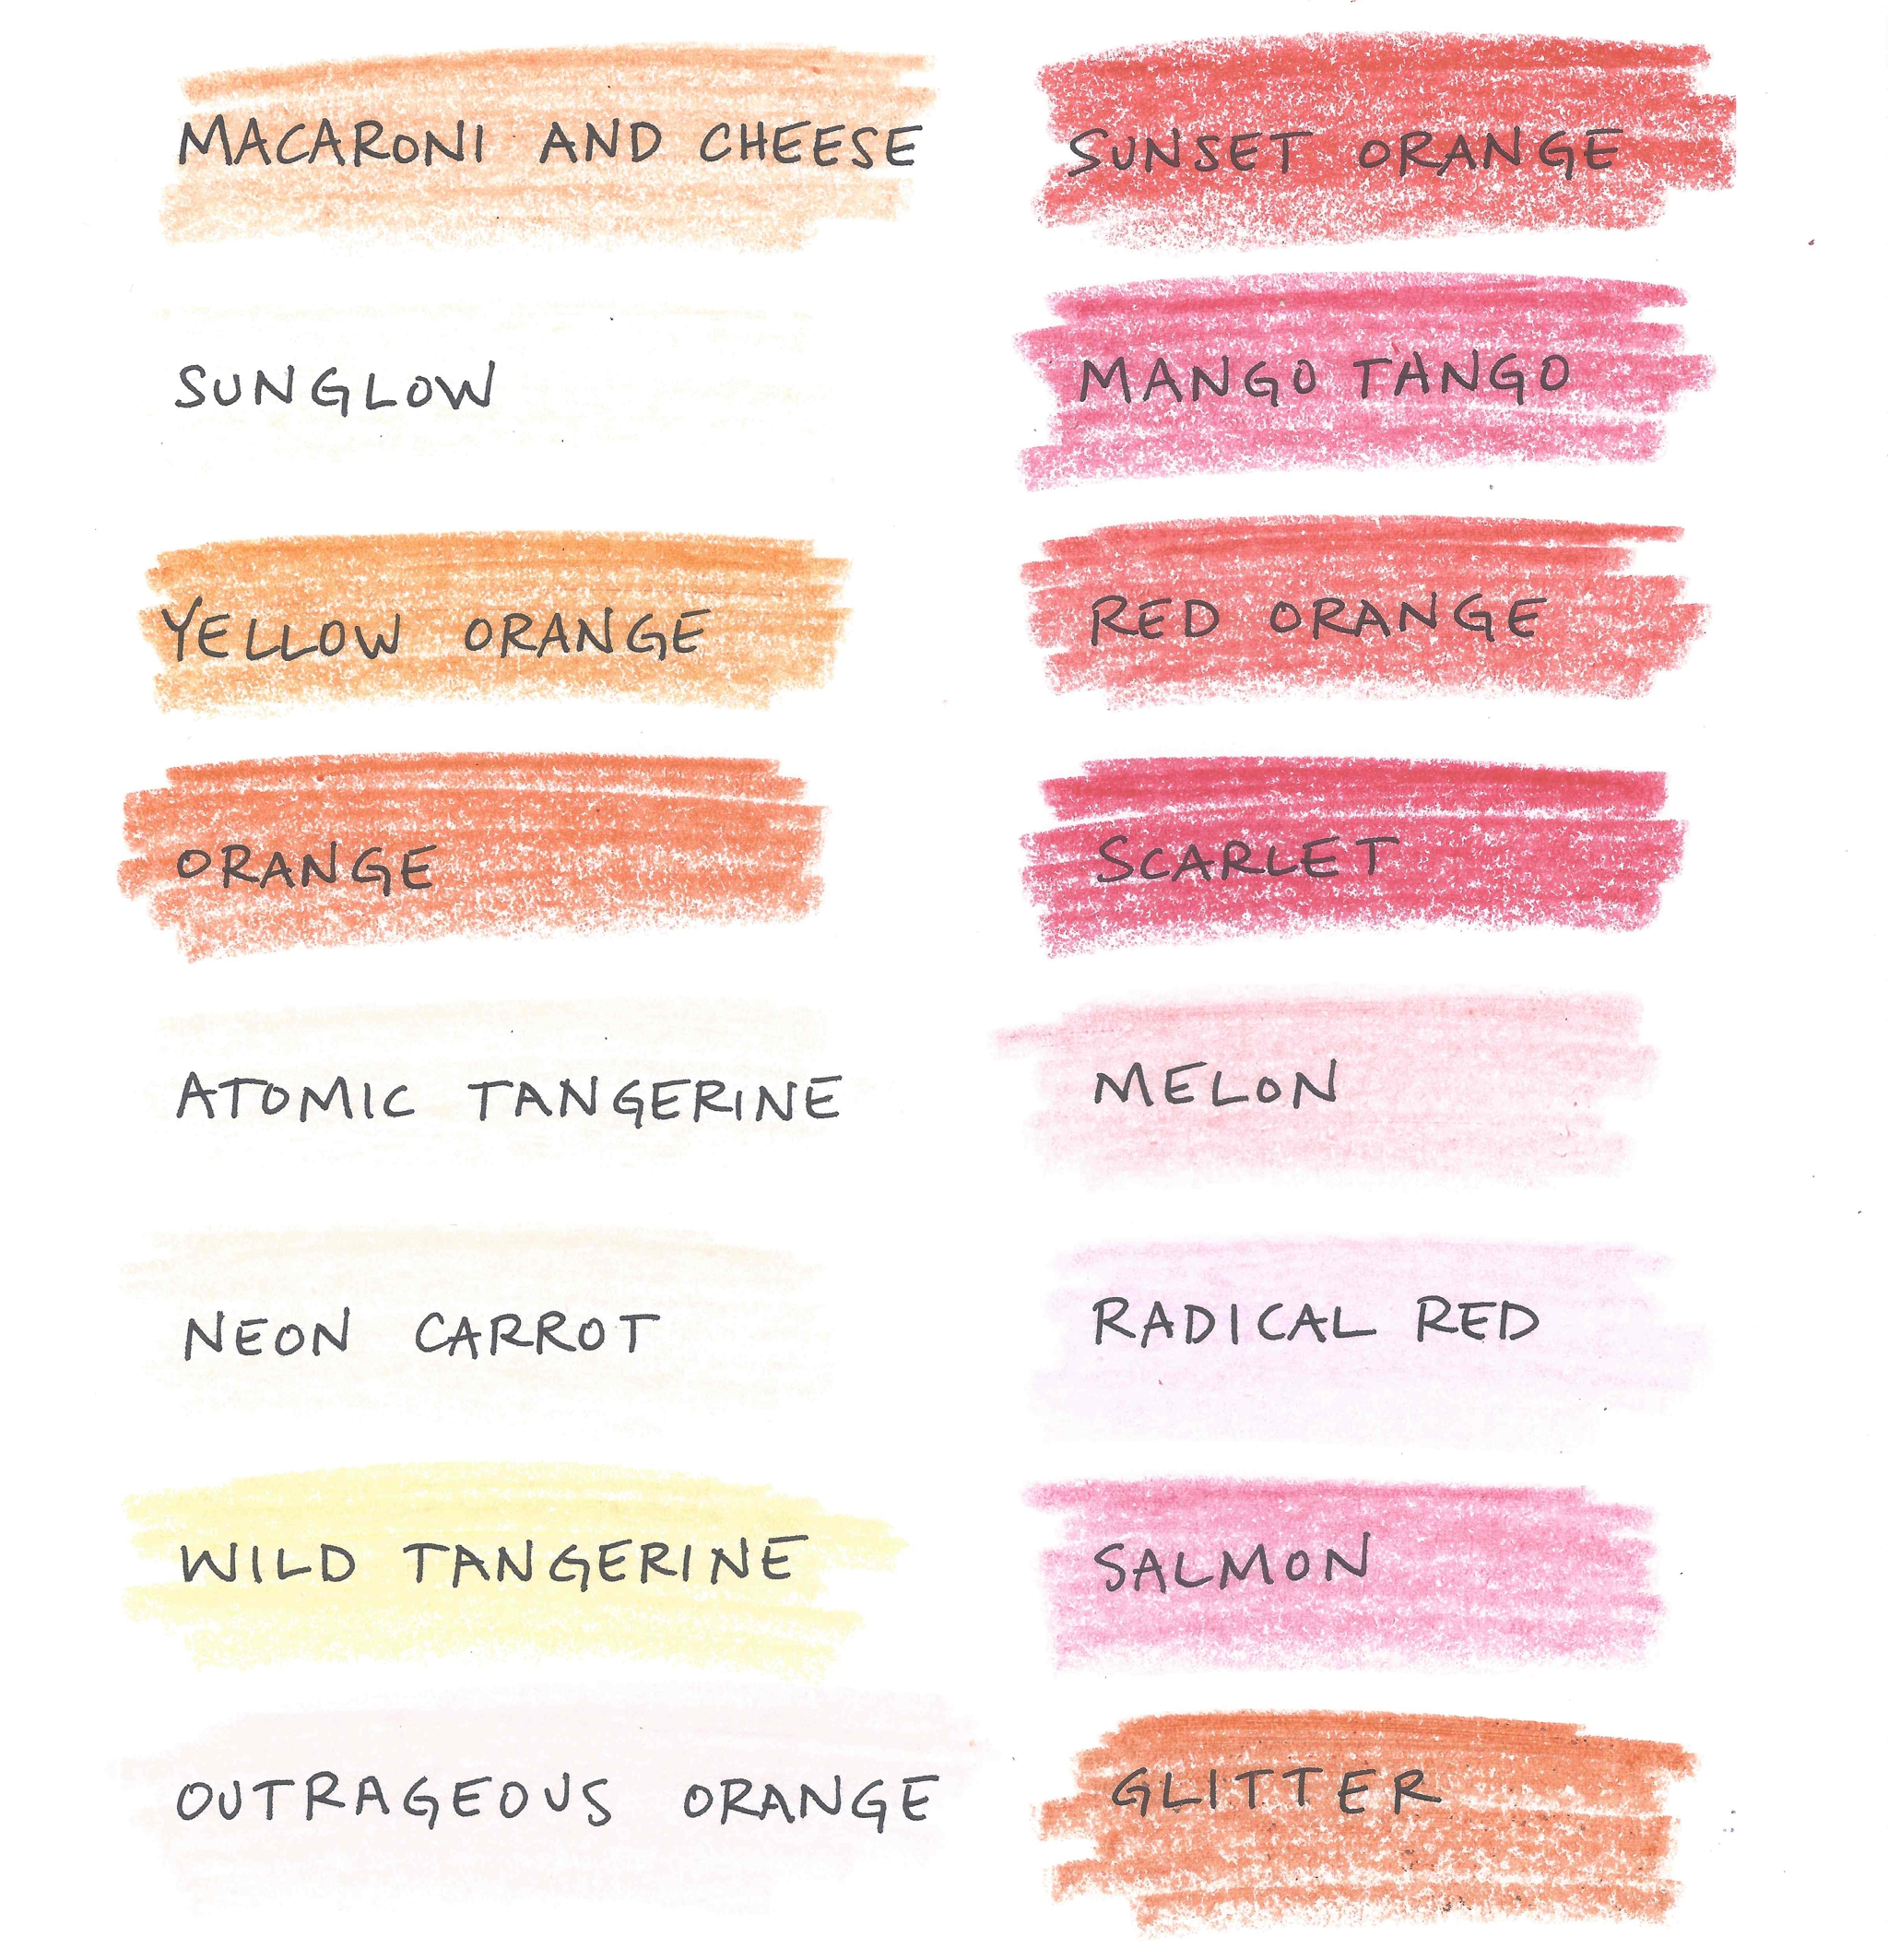 MACARONI AND CHEESE
SUNGLOW
YELLOW ORANGE
ORANGE
ATOMIC TANGERINE
NEON CARROT
WILD TANGERINE
OUTRAGEOUS ORANGE
SUNSET ORANGE
MANGO TANGO
RED ORANGE
SCARLET
MELON
RADICAL RED
SALMON
GLITTER